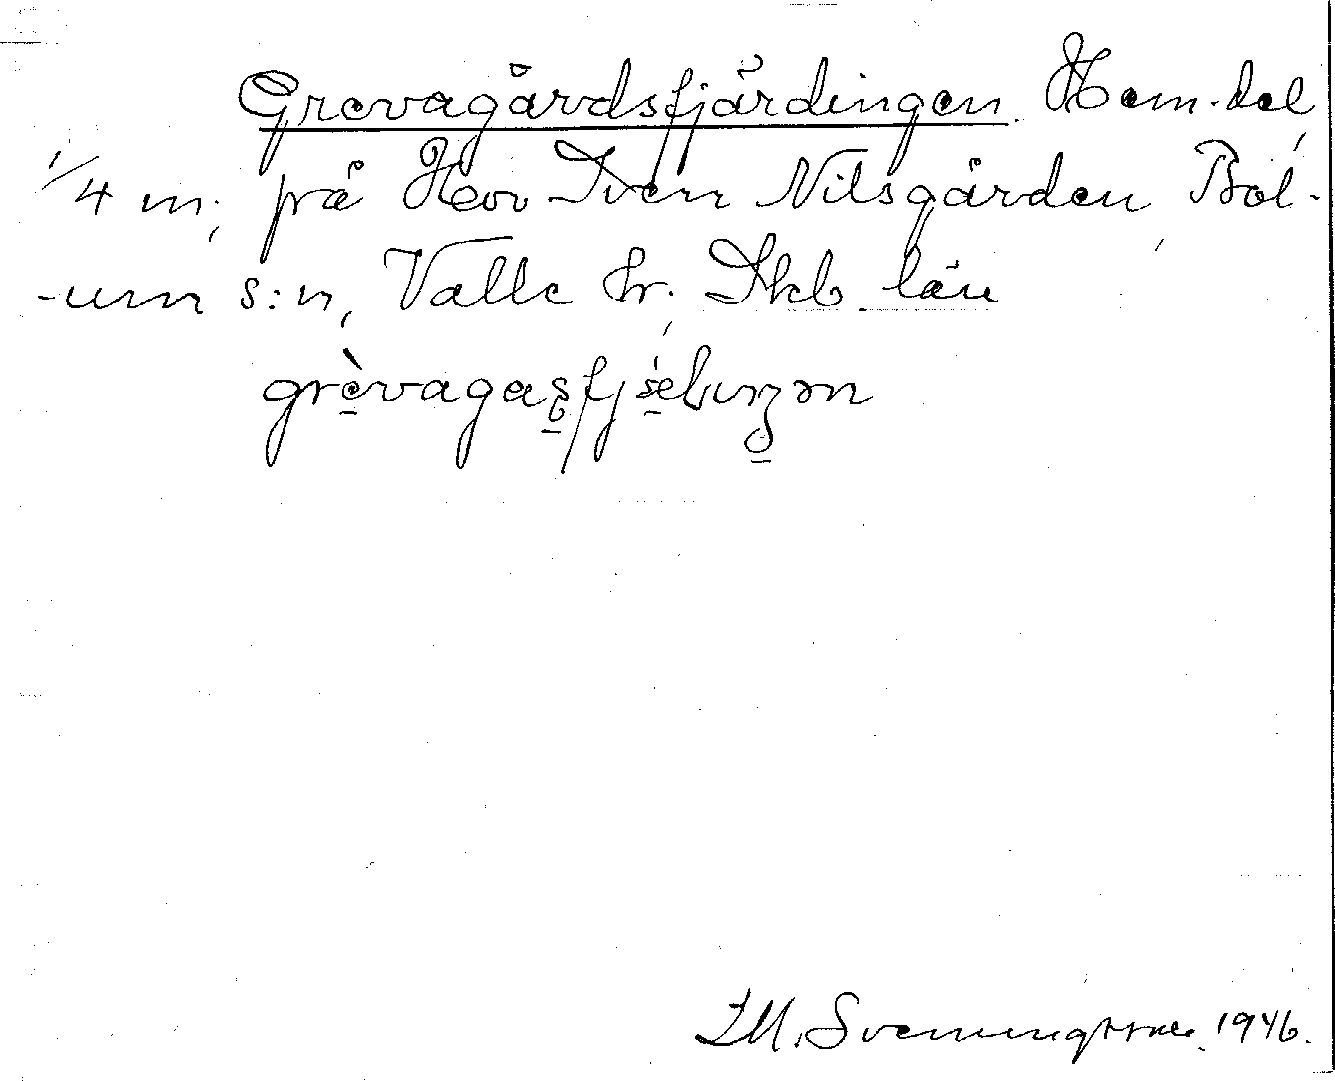 Grevagårdsfjärdingen. Hem.del,
1/4 m; på Hov Sven Nilsgården, Bol-
-um s:n, Valle hr. Skb län
grèvagaʂfjǽɖiŋən
I.M. Svenningsson. 1946.